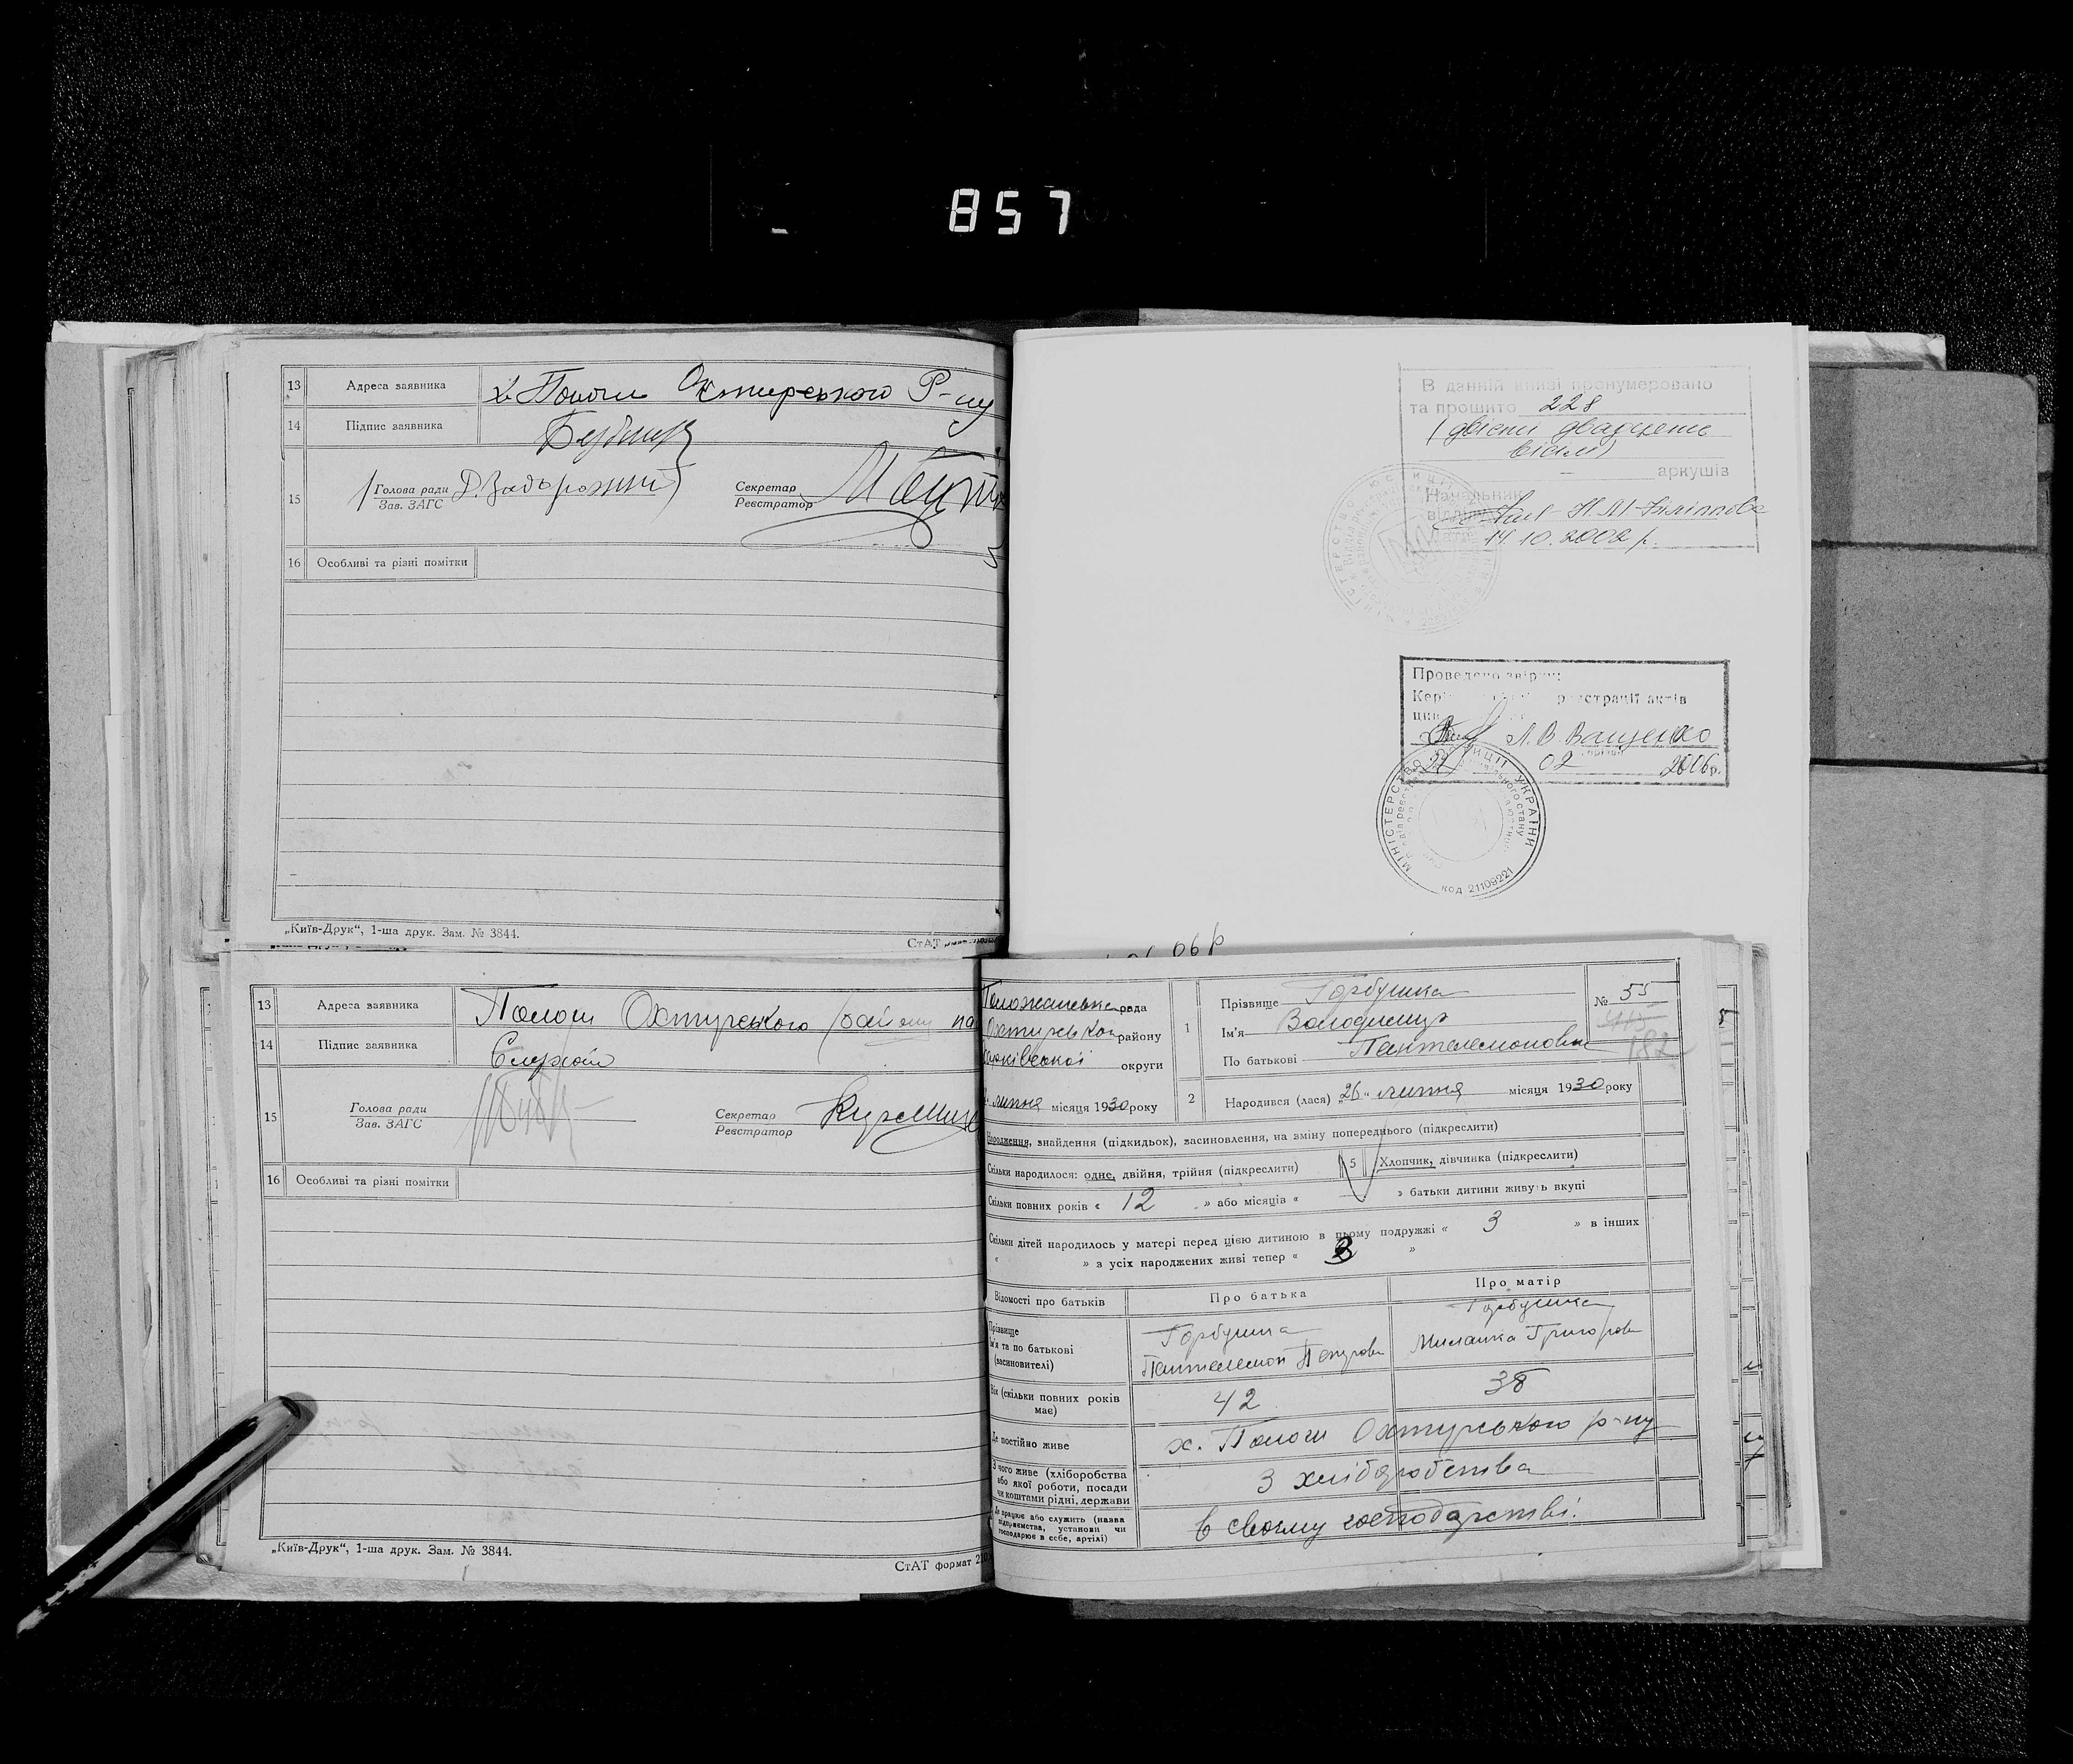 857
13 Адреса заявника х. Пологи Охтирського Р-ну
14 Підпис заявника
15 Голова ради Д. Задорожній
Зав. ЗАГС
Секретар
Реєстратор
16 Особливі та різні помітки
„Київ-Друк“, 1-ша друк. Зам. № 3844.
СтАТ
В данній книзі пронумеровано
та прошито 228
(двісті двадцять
вісім)
аркушів
Начальник
відділу Н.М. Філіппова
14.10.2002 р.
Проведено звірку:
реєстрації актів
Л.В. Ващенко
02 2006 р.
МІНІСТЕРСТВО ЮСТИЦІЇ УКРАЇНИ
код 21109221
06 р
13 Адреса заявника Пологи Охтирського району
14 Підпис заявника
15 Голова ради
Зав. ЗАГС
Секретар
Реєстратор
16 Особливі та різні помітки
„Київ-Друк“, 1-ша друк. Зам. № 3844.
СтАТ формат
рада
Охтирськог району
округи
липня місяця 1930 року
1 Прізвище Горбушка
Ім'я Володимир
По батькові Пантелемонович
№ 55
182
2 Народився (лася) „26“ липня місяця 1930 року
Народження, знайдення (підкидьок), засиновлення, на зміну попереднього (підкреслити)
Скільки народилося: одне, двійня, трійня (підкреслити)
5 Хлопчик, дівчинка (підкреслити)
Скільки повних років « 12 » або місяців « — » батьки дитини живуть вкупі
Скільки дітей народилось у матері перед цією дитиною в цьому подружжі « 3 » в інших
« » з усіх народжених живі тепер « 3 »
Відомості про батьків Про батька Про матір
Прізвище
Ім'я та по батькові
(засиновителі)
Горбушка
Пантелемон Петрови
Горбушка
Миланка Григоров
Вік (скільки повних років має) 42 38
Де постійно живе х. Пологи Охтирського р-ну
З чого живе (хліборобства
або якої роботи, посади
чи коштами рідні, держави
З хліборобства
Де працює або служить (назва
підприємства, установи чи
господарює в себе, артілі)
в своєму господарстві.